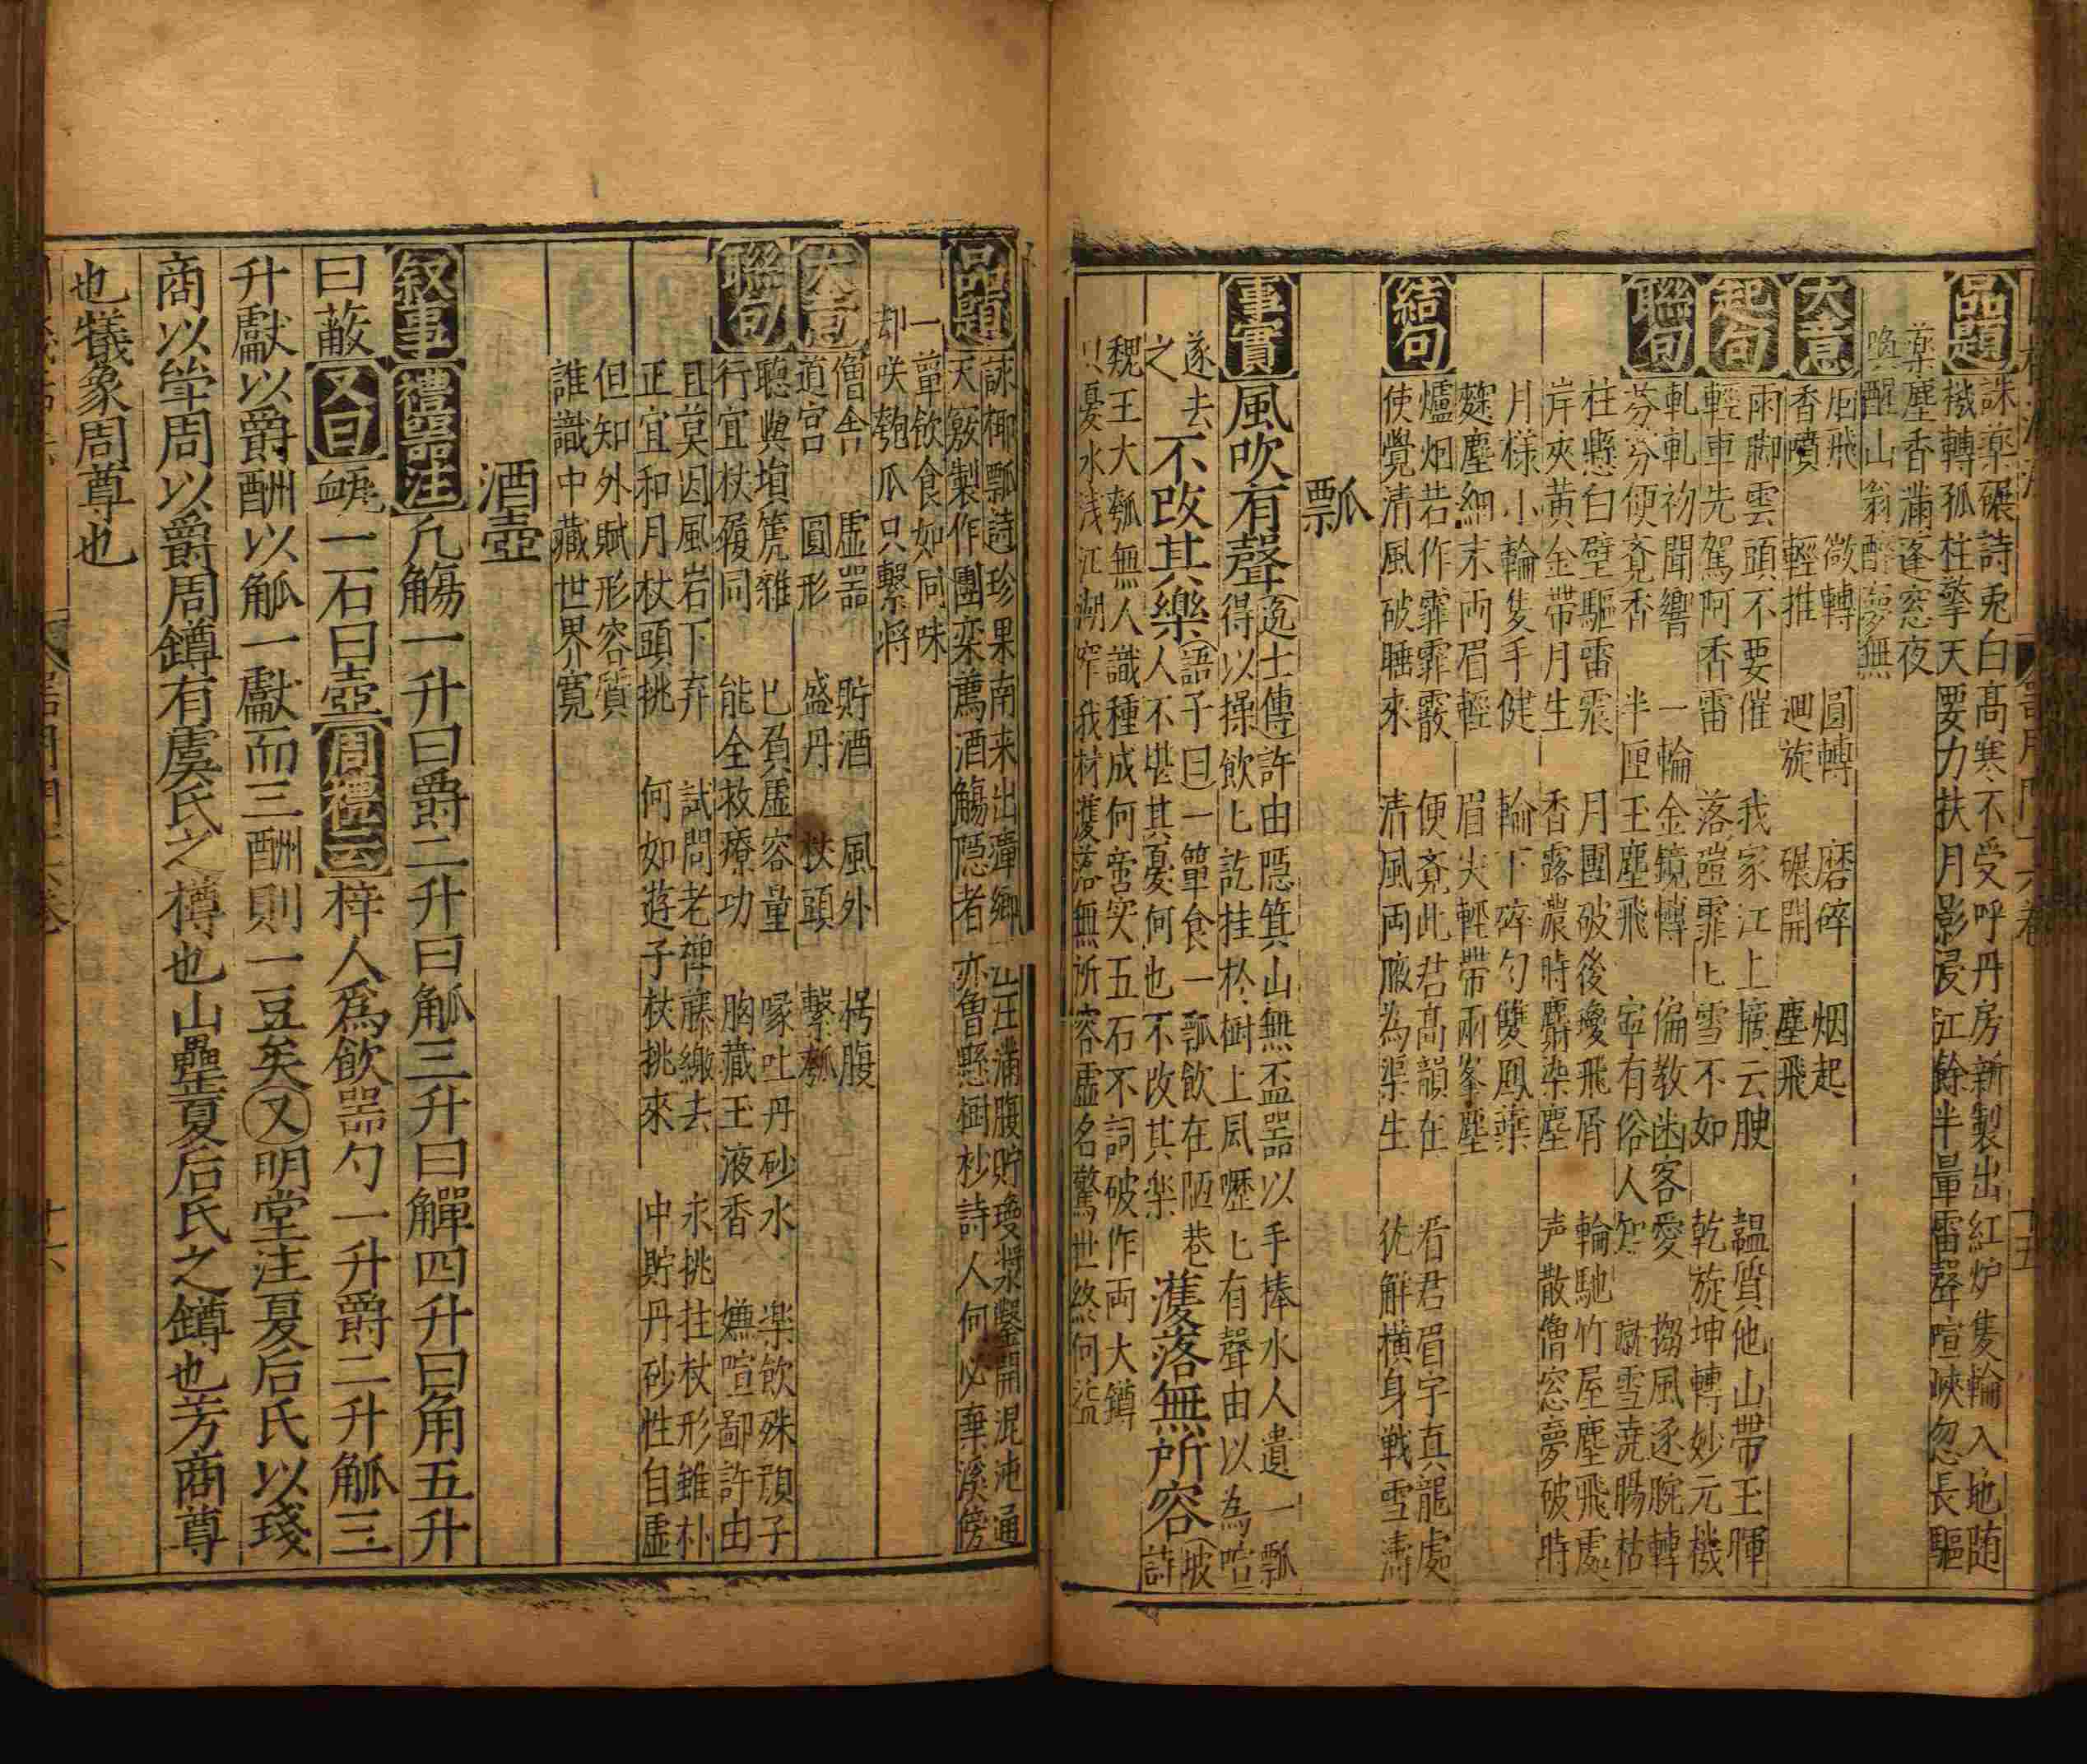 品題
誅藥碾詩兎白髙寒不受呼丹房新製出紅炉隻輪入地随
機轉孤柱擎天要力扶月影浸江餘半暈雷聲喧峽忽長驅
藥塵香滿蓬窓夜
喚醒山翁醉夢無
大意
烟飛 敬轉 圓轉 磨碎 烟起
香噴 輕推 迴旋 碾開 塵飛
起句
雨脚雲頭不要催 我家江上摘云腴 韞質他山帶玉暉
輕車先駕阿香雷 落磑霏匕雪不如 乾旋坤轉妙元機
聯句
軋軋初聞響一輪金鏡轉 偏教幽客愛 搊風逐腕轉
芬芬便覔香 半匣玉塵飛 寧有俗人知 蹴雪澆腸枯
柱懸白壁驅雷震 月團破後瓊飛屑 輪馳竹屋塵飛處
岸夾黄金帶月生 香露濃時麝染塵 声散僧窓夢破時
月様小輪隻手健 輪下碎勻雙鳳葉
麩塵細末兩眉輕 眉尖輕帶兩峯塵
結句
爐烟若作霏霏霰 便覔此君髙韻在 看君眉宇真龍處
使覺清風破睡來 清風両腋為渠生 優觧横身戦雪濤
瓢
事實
風吹有聲
逸士傳許由隱箕山無盃噐以手棒水人遺一瓢
得以操飲匕訖挂於樹上風壢匕有聲由以為
遂去
之
不改其樂
語子曰一簞食一瓢飲在陋巷
人不堪其憂何也不改其樂
濩落無所容
坡
詩
魏王大瓠無人識種成何啻实五石不詞破作両大罇
只憂水浅江湖窄我材濩落無所容虛名驚世終何益
品題
詠椰瓢詩珍果南来出瘴鄉 滿腹貯瓊漿鑿開混沌通
天竅製作團栾薦酒觴隱者亦魯懸樹杪詩人何必棄溪傍
一簞飲食如同味
却咲匏瓜只繫将
大意
僧舎 虛噐 貯酒 風外 枵腹
道宫 圓形 盛丹 杖頭 繫瓠
聯句
聴與埙箎雅 已負虛容量 喙吐丹砂水 楽飲殊頇子
行宜杖屨同 能全救療功 胸藏玉液香 嫌喧鄙許由
且莫因風岩下弃 試問老禅藤繳去 未挑拄杖形雖朴
正宜和月杖頭挑 何如逰子杖挑來 中貯丹砂性自虛
但知外賦形容質
誰識中藏世界寛
酒壺
叙事
禮器注
凢觴一升曰爵二升曰觚三升曰觶四升曰角五升
曰蔽
又曰
一石曰壺
周禮云
梓人爲飲噐勺一升爵二升觚三
升獻以爵酬以觚一獻而三酬則一豆矣又明堂注夏后氏以琖
商以斚周以爵周罇有虞氏之樽也山罍夏后氏之罇也芳商尊
也犠象周尊也